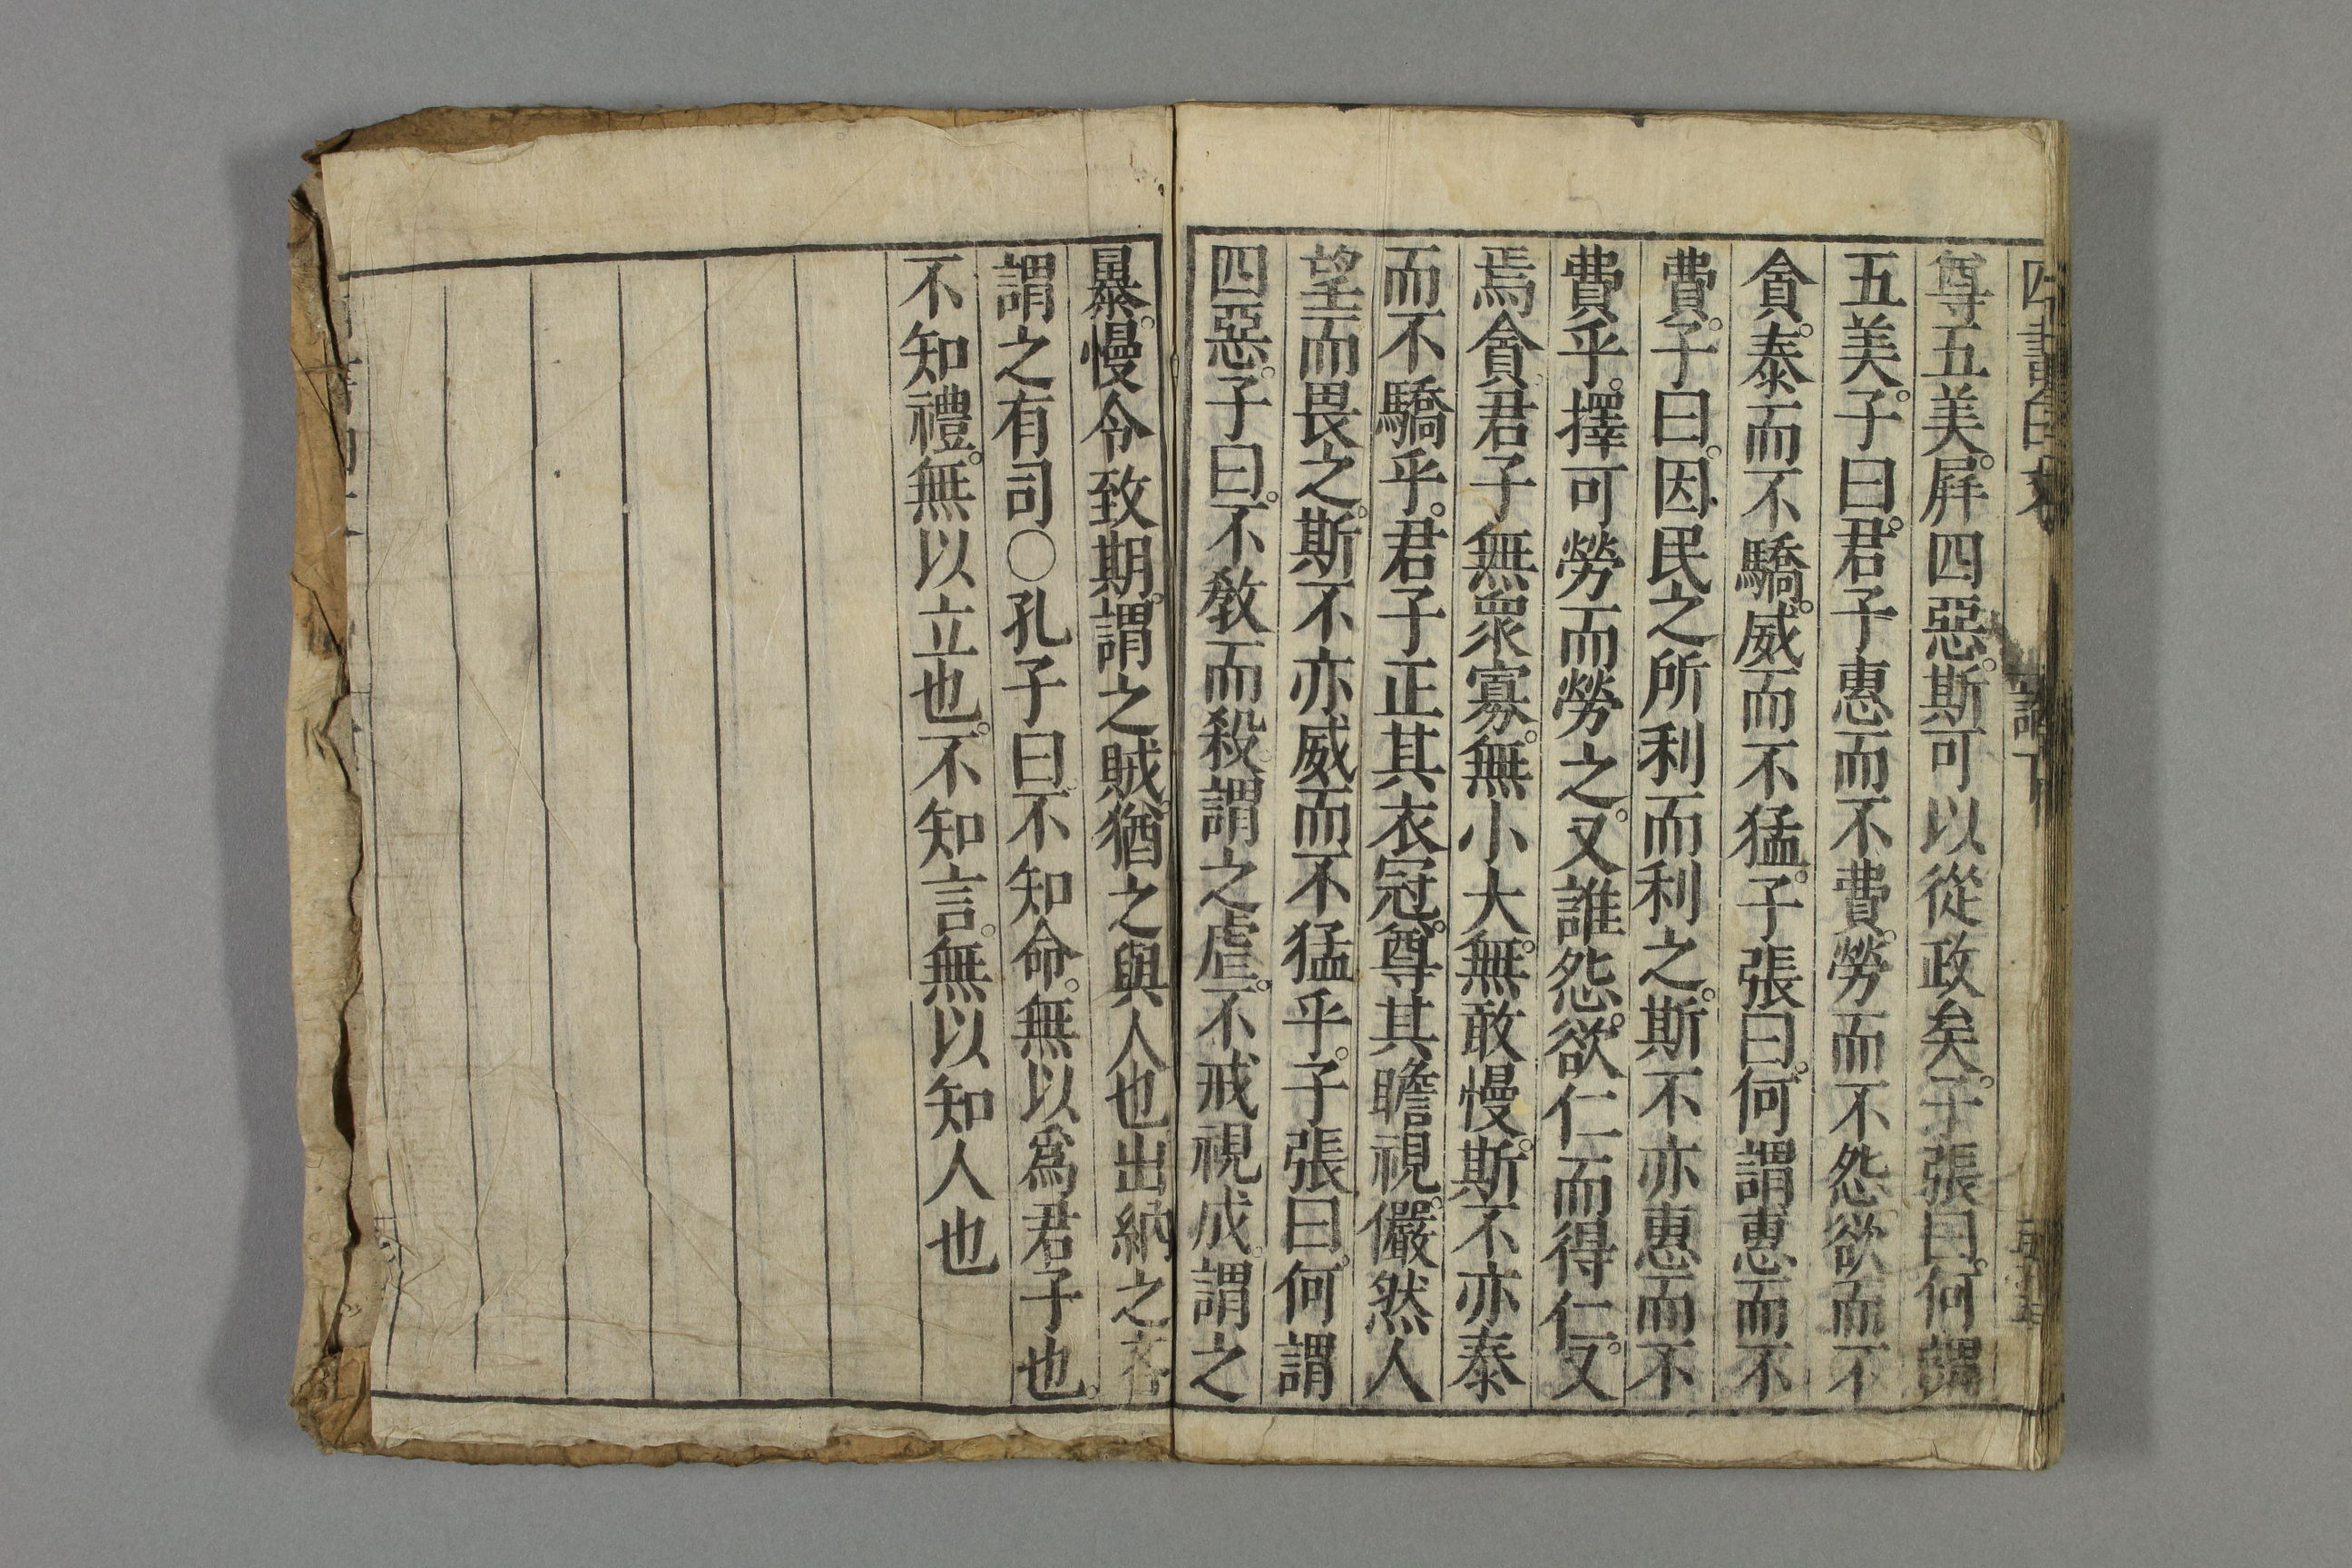 四書白文 語下
尊五美。屏四惡。斯可以從政矣。子張曰。何謂
五美。子曰。君子惠而不費。勞而不怨。欲而不
貪。泰而不驕。威而不猛。子張曰。何謂惠而不
費。子曰。因民之所利而利之。斯不亦惠而不
費乎。擇可勞而勞之。又誰怨。欲仁而得仁。又
焉貪。君子無衆寡。無小大。無敢慢。斯不亦泰
而不驕乎。君子正其衣冠。尊其瞻視。儼然人
望而畏之。斯不亦威而不猛乎。子張曰。何謂
四惡。子曰。不敎而殺。謂之虐。不戒視成。謂之
暴。慢令致期。謂之賊。猶之與人也出納之吝
謂之有司〇孔子曰。不知命。無以爲君子也。
不知禮。無以立也。不知言。無以知人也